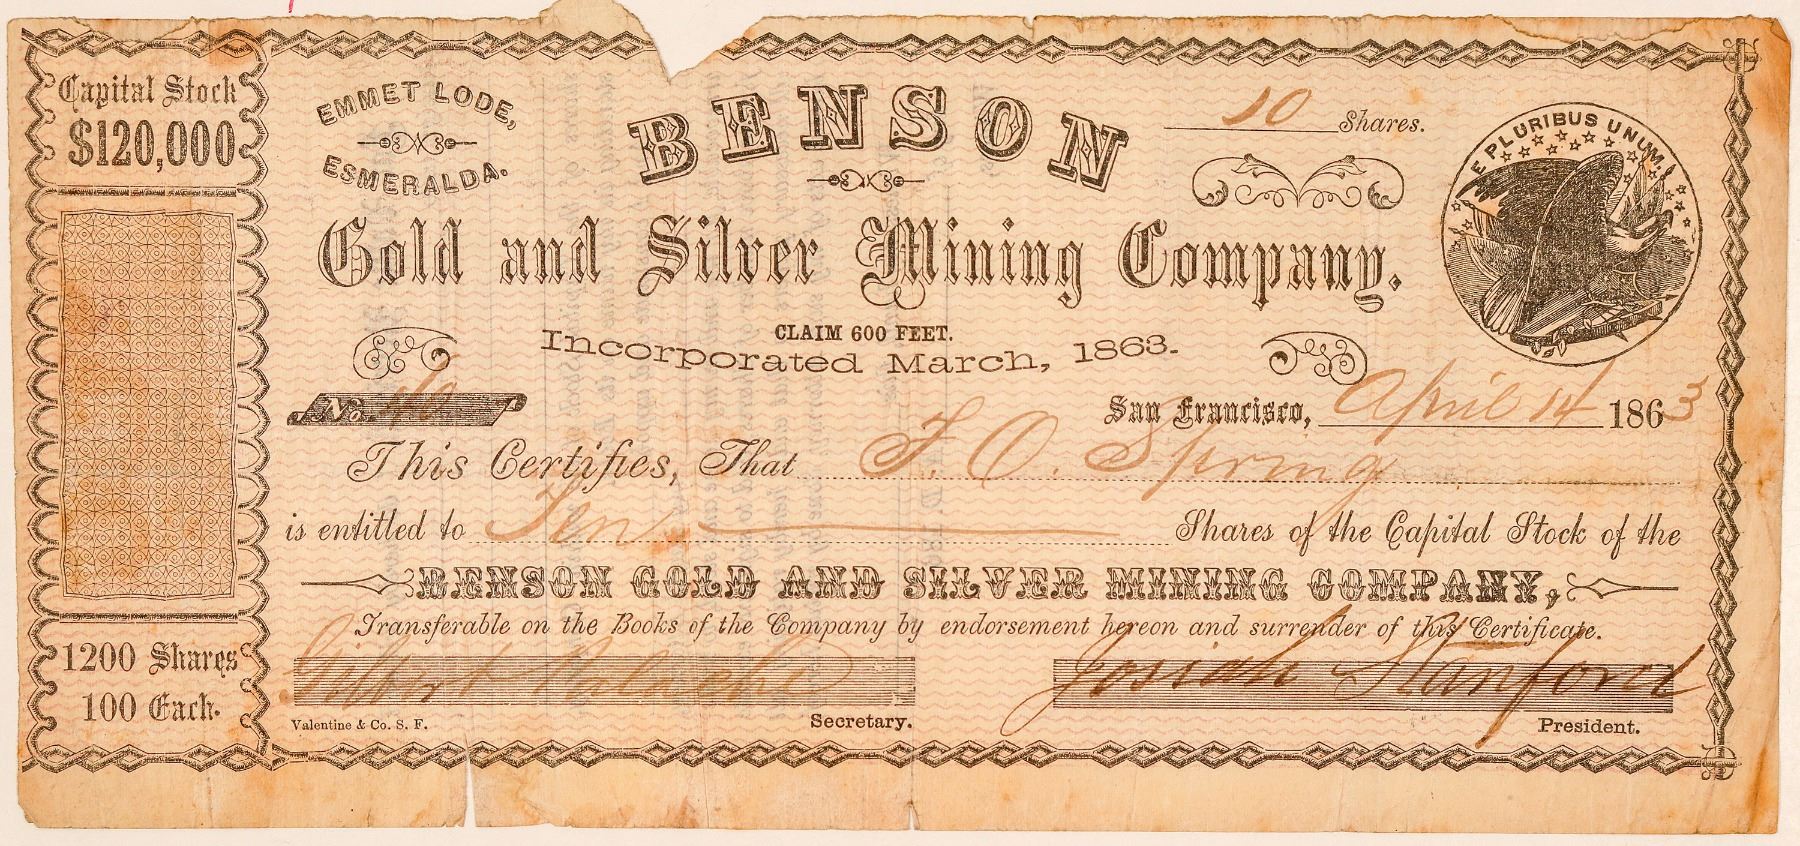 Capital Stock
$120,000
EMMET LODE,
ESMERALDA.
BENSON
10 Shares.
E PLURIBUS UNUM
Gold and Silver Mining Company.
CLAIM 600 FEET.
Incorporated March, 1863.
No. 40
San Francisco, April 14 1863
This Certifies, That J. O. Spring
is entitled to Ten Shares of the Capital Stock of the
BENSON GOLD AND SILVER MINING COMPANY,
Transferable on the Books of the Company by endorsement hereon and surrender of this Certificate.
1200 Shares
100 Each.
Gilbert Palache
Josiah Stanford
Valentine & Co. S. F.
Secretary.
President.